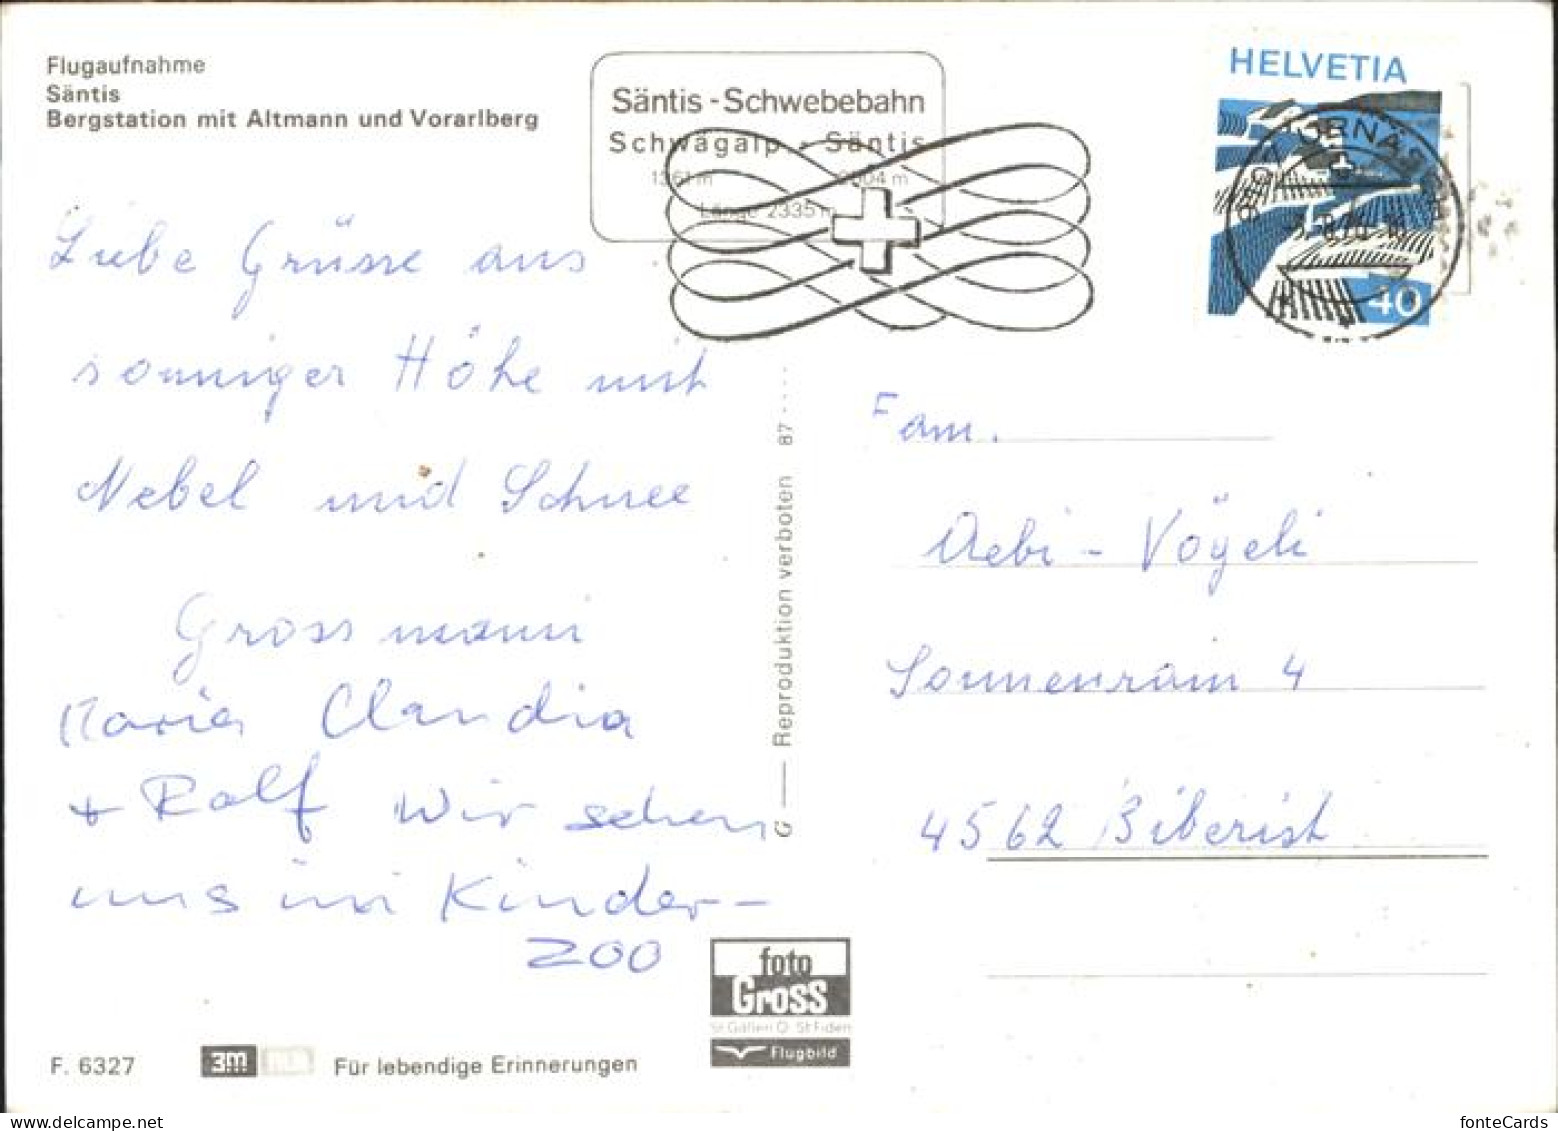 Flugaufnahme
Säntis
Bergstation mit Altmann und Vorarlberg
Säntis - Schwebebahn
Schwägalp - Säntis
1361 m 2504 m
Länge 2335 m
HELVETIA
40
Liebe Grüsse aus
sonniger Höhe mit
Nebel und Schnee
Grossmann
Maria Claudia
+ Ralf Wir sehen
uns im Kinder-
zoo
Fam.
Aebi - Vögeli
Sonnenrain 4
4562 Biberist
G — Reproduktion verboten 87 ....
foto
Gross
St. Gallen O St. Fiden
Flugbild
F. 6327
3m
Für lebendige Erinnerungen
www.delcampe.net
fonteCards